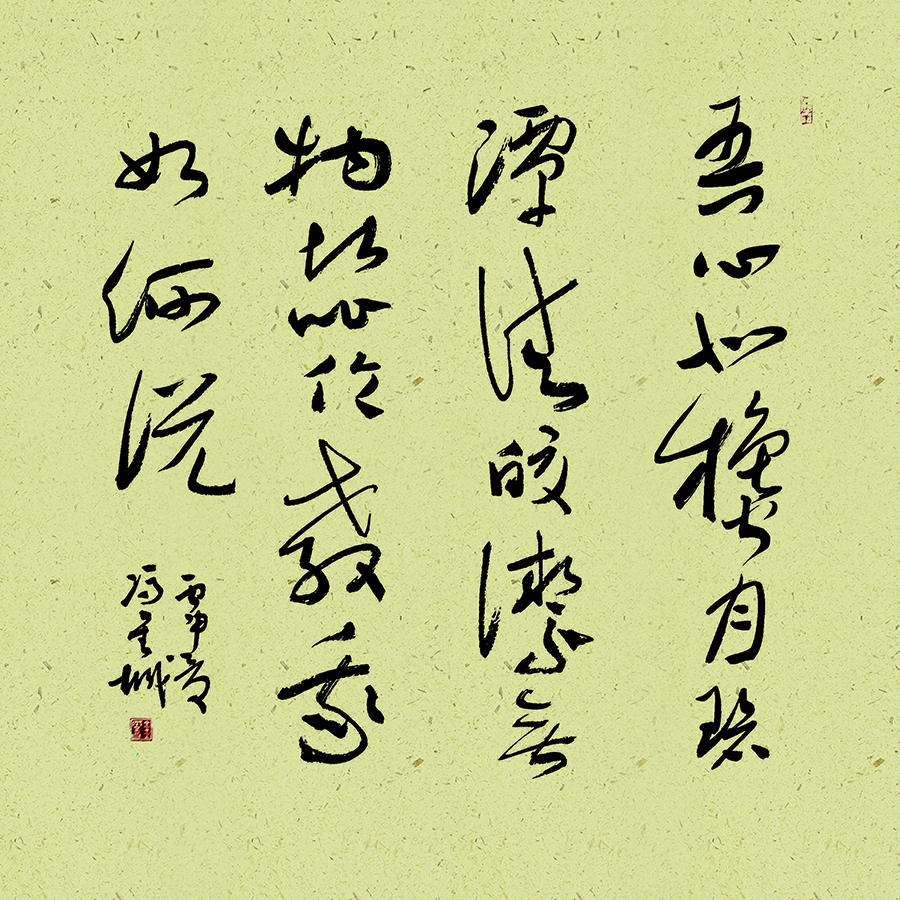 吾心似龝月碧
潭清皎潔無
物堪比倫教我
如何説
丙申夏